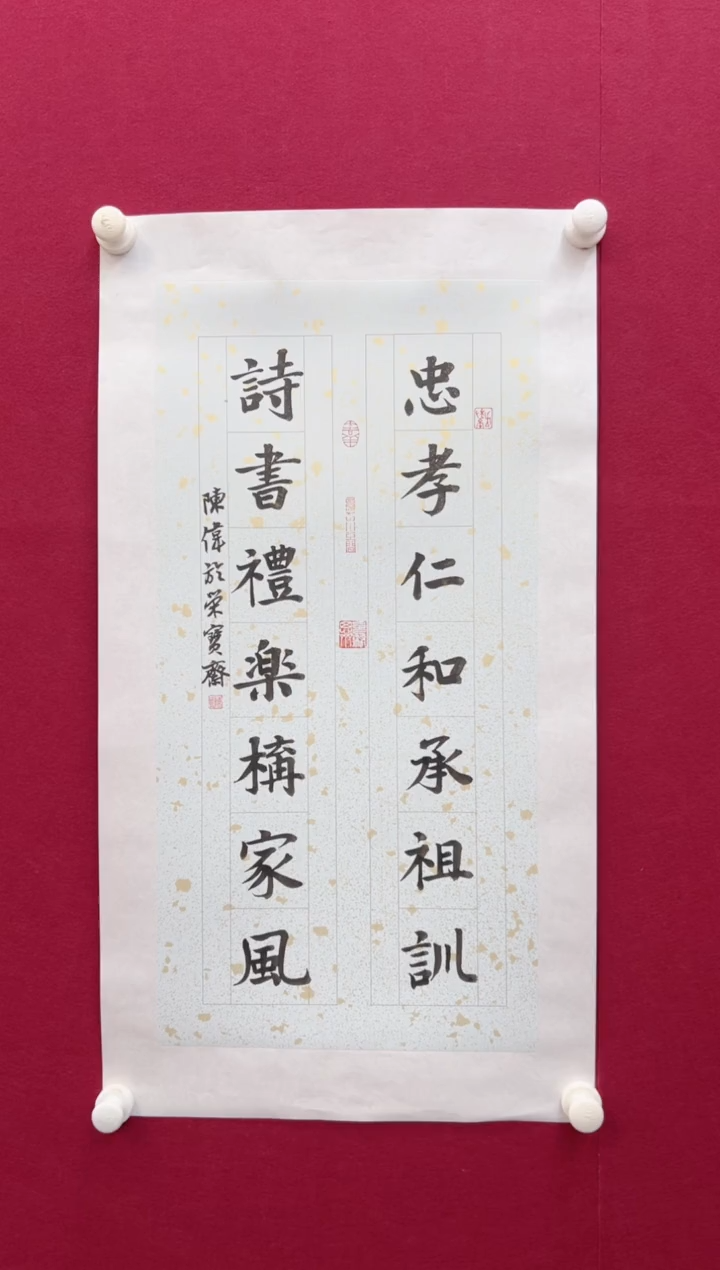 忠孝仁和承祖訓
詩書禮楽構家風
陳偉於栄寶齋